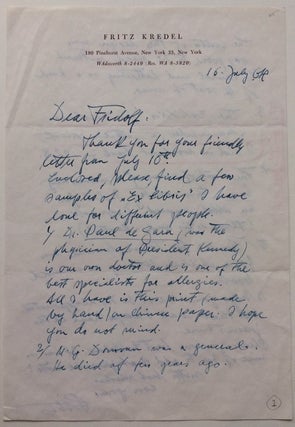 FRITZ KREDEL
180 Pinehurst Avenue, New York 33, New York
WAdsworth 8-2449 Res. WA 8-3920
16. July
Dear
Thank you for your friendly
letter from July 10th
enclosed, please, find a few
samples of "Ex libris" I have
done for different people.
1/ Dr. Paul de Gara, (was the
physician of President Kennedy)
is our own doctor and is one of the
best specialists for allergies.
All I have is this print, made
by hand/on Chinese paper. I hope
you do not mind.
2/ Donovan was a general.
He died a few years ago.
1